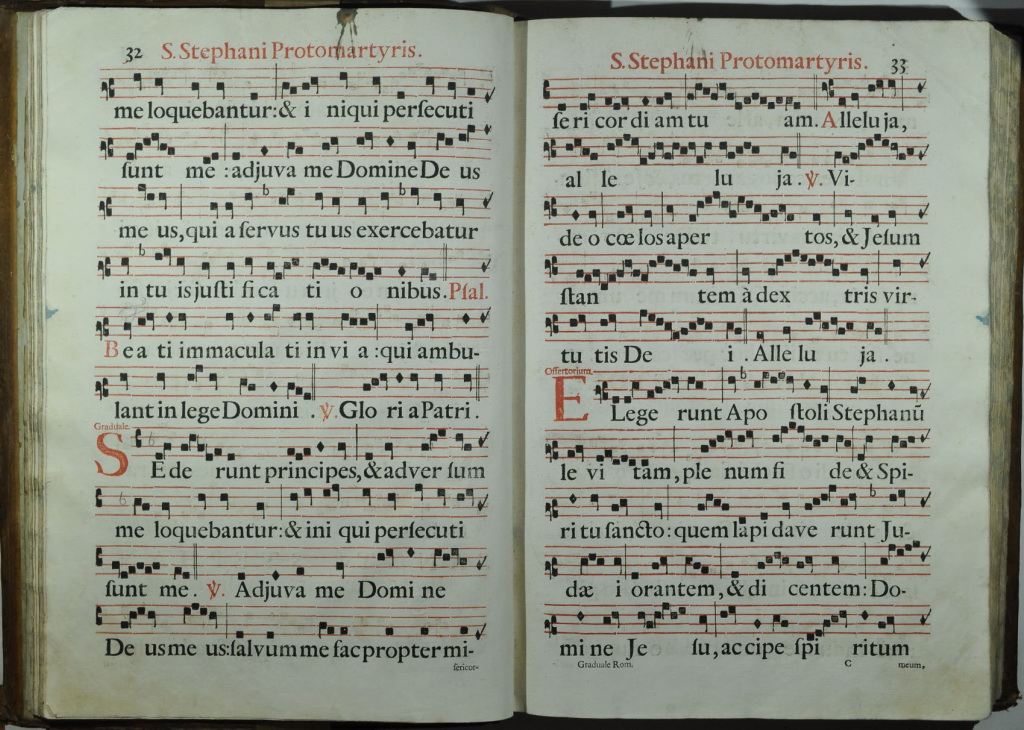 32 S. Stephani Protomartyris.
me loquebantur: & i niqui perſecuti
ſunt me : adjuva me Domine De us
me us, qui a ſervus tu us exercebatur
in tu is juſti fi ca ti o nibus. Pſal.
B e a ti immacula ti in vi a : qui ambu-
lant in lege Domini . ℣. Glo ri a Patri .
Graduale.
S E de runt principes, & adver ſum
me loquebantur: & ini qui perſecuti
ſunt me. ℣. Adjuva me Domi ne
De us me us: ſalvum me fac propter mi-
ſericor-
S. Stephani Protomartyris. 33
ſe ri cor di am tu am. Allelu ja,
al le lu ja . ℣. Vi-
de o cœ los aper tos, & Jeſum
ſtan tem à dex tris vir-
tu tis De i . Alle lu ja .
Offertorium.
E Lege runt Apo ſtoli Stephanū
le vi tam, ple num fi de & Spi-
ri tu ſancto: quem lapi dave runt Ju-
dæ i orantem, & di centem: Do-
mi ne Je ſu, accipe ſpi ritum
Graduale Rom. C meum,